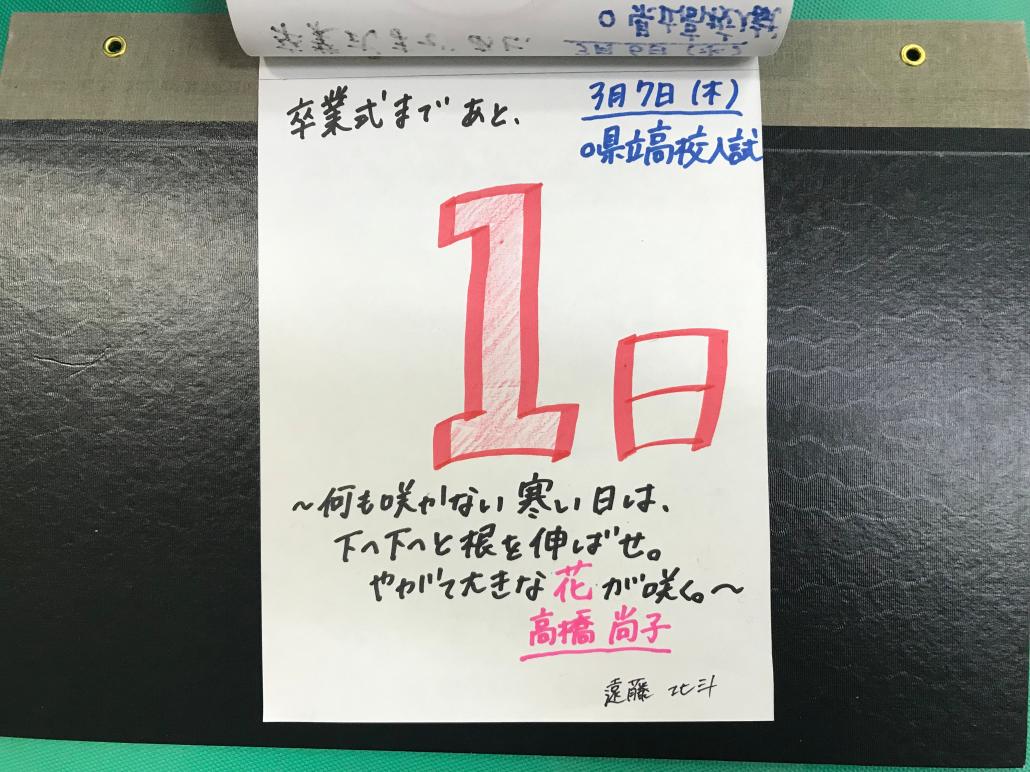 卒業式まであと、
3月7日(木)
○県立高校入試
1日
～何も咲かない寒い日は、
下へ下へと根を伸ばせ。
やがて大きな花が咲く。～
高橋尚子
遠藤 北斗